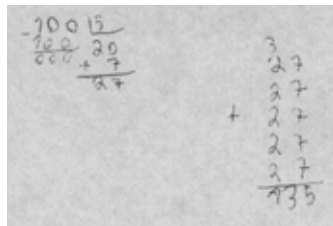 -100 |5
100 20
000 + 7
27
3
27
27
+ 27
27
27
135